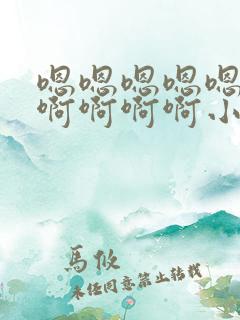 嗯嗯嗯嗯嗯
啊啊啊啊小
馬攸
未经同意禁止转载